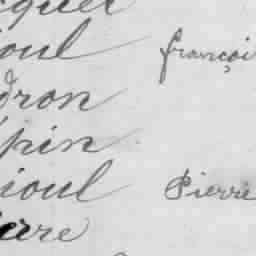 cquer
ioul françoi
dron
pin
ioul Pierre
erre